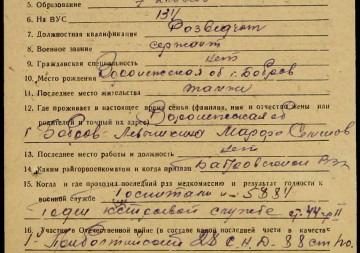 5. Образование 7 классов
6. На ВУС 134
7. Должностная квалификация Разведчик
8. Военное звание сержант
9. Гражданская специальность нет
10. Место рождения Воронежская об г. Бобров
11. Последнее место жительства там же
12. Где проживает в настоящее время семья (фамилия, имя и отчество жены или
родителей и точный их адрес) Воронежская об
г. Бобров - Марфа
13. Последнее место работы и должность нет
14. Каким райгорвоенкоматом и когда призван Бобровский
15. Когда и где проходил последний раз медкомиссию и результат годности к
военной службе Госпиталь
годен к строевой службе
16. Участие в Отечественной войне (в составе какой последней части в качестве
1- Прибалтийский 28